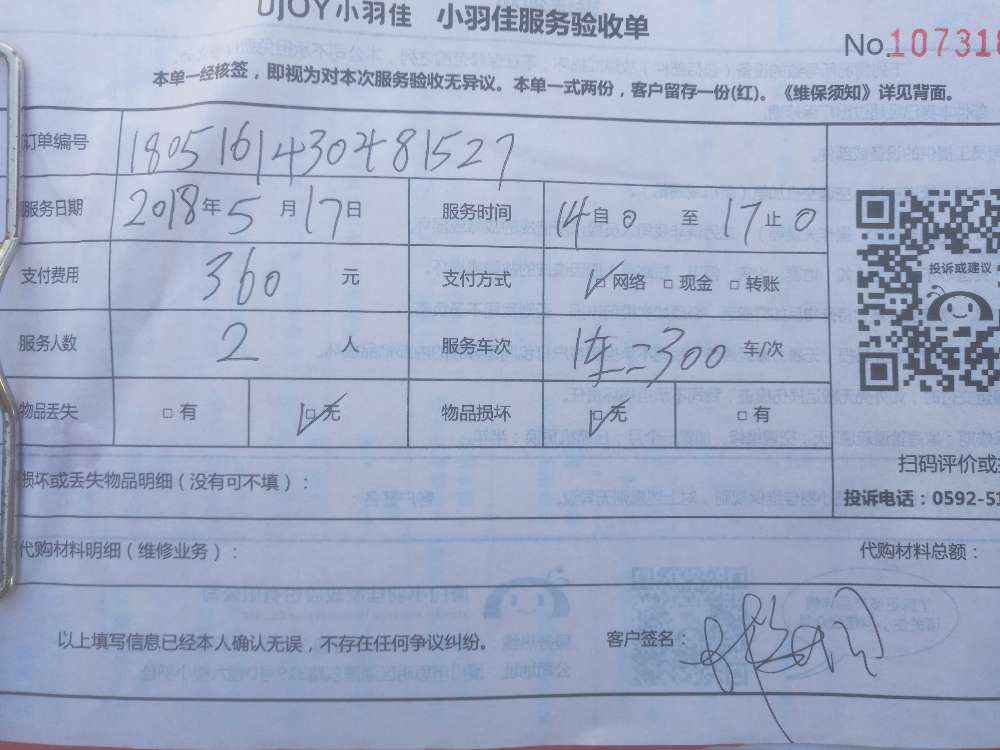 UJOY小羽佳 小羽佳服务验收单
No.107318
本单一经核签，即视为对本次服务验收无异议。本单一式两份，客户留存一份(红)。《维保须知》详见背面。
订单编号 180516143048 1527
服务日期 2018年5月17日 服务时间 14自0至17止0
支付费用 360元 支付方式 ☑网络 □现金 □转账
投诉或建议
服务人数 2人 服务车次 1车=300 车/次
物品丢失 □有 ☑无 物品损坏 ☑无 □有
损坏或丢失物品明细（没有可不填）：
扫码评价或
投诉电话：0592-51
代购材料明细（维修业务）：
代购材料总额：
以上填写信息已经本人确认无误，不存在任何争议纠纷。 客户签名：